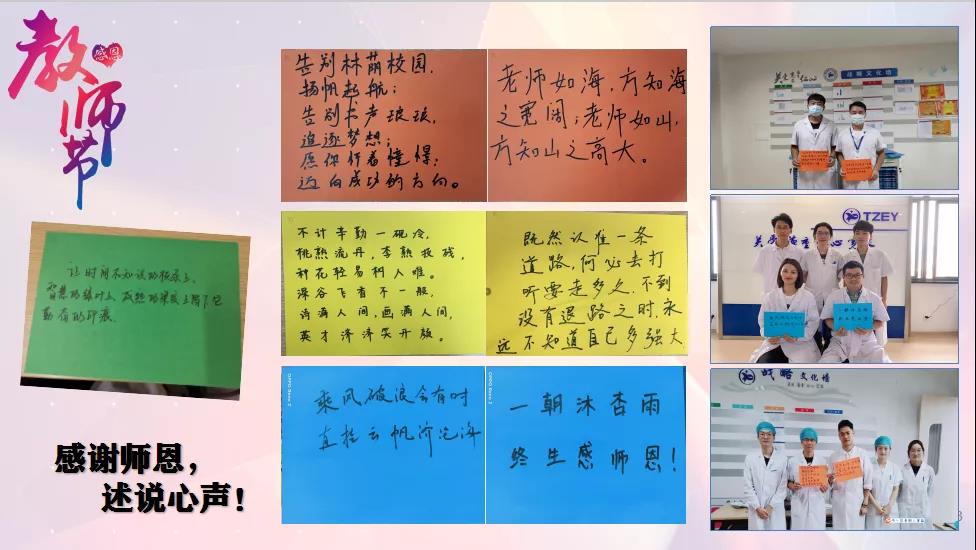 教师节
感恩
告别林荫校园,
扬帆起航;
告别书声琅琅,
追逐梦想;
愿你怀着憧憬;
迈向成功的方向。
老师如海,方知海
之宽阔;老师如山,
方知山之高大。
让时间在知识的枝条上、
智慧的绿叶上、成熟的果实上留下它
勤奋的印痕。
不计辛勤一砚冷,
桃熟流丹,李熟枝残,
种花轻易树人难。
深谷飞香不一般,
诗满人间,画满人间,
英才济济笑开颜。
既然认准一条
道路,何必去打
听要走多久,不到
没有退路之时,永
远不知道自己多强大
乘风破浪会有时
直挂云帆济沧海
一朝沐杏雨
终生感师恩!
感谢师恩,
述说心声!
战略文化墙
TZEY
战略文化墙
3